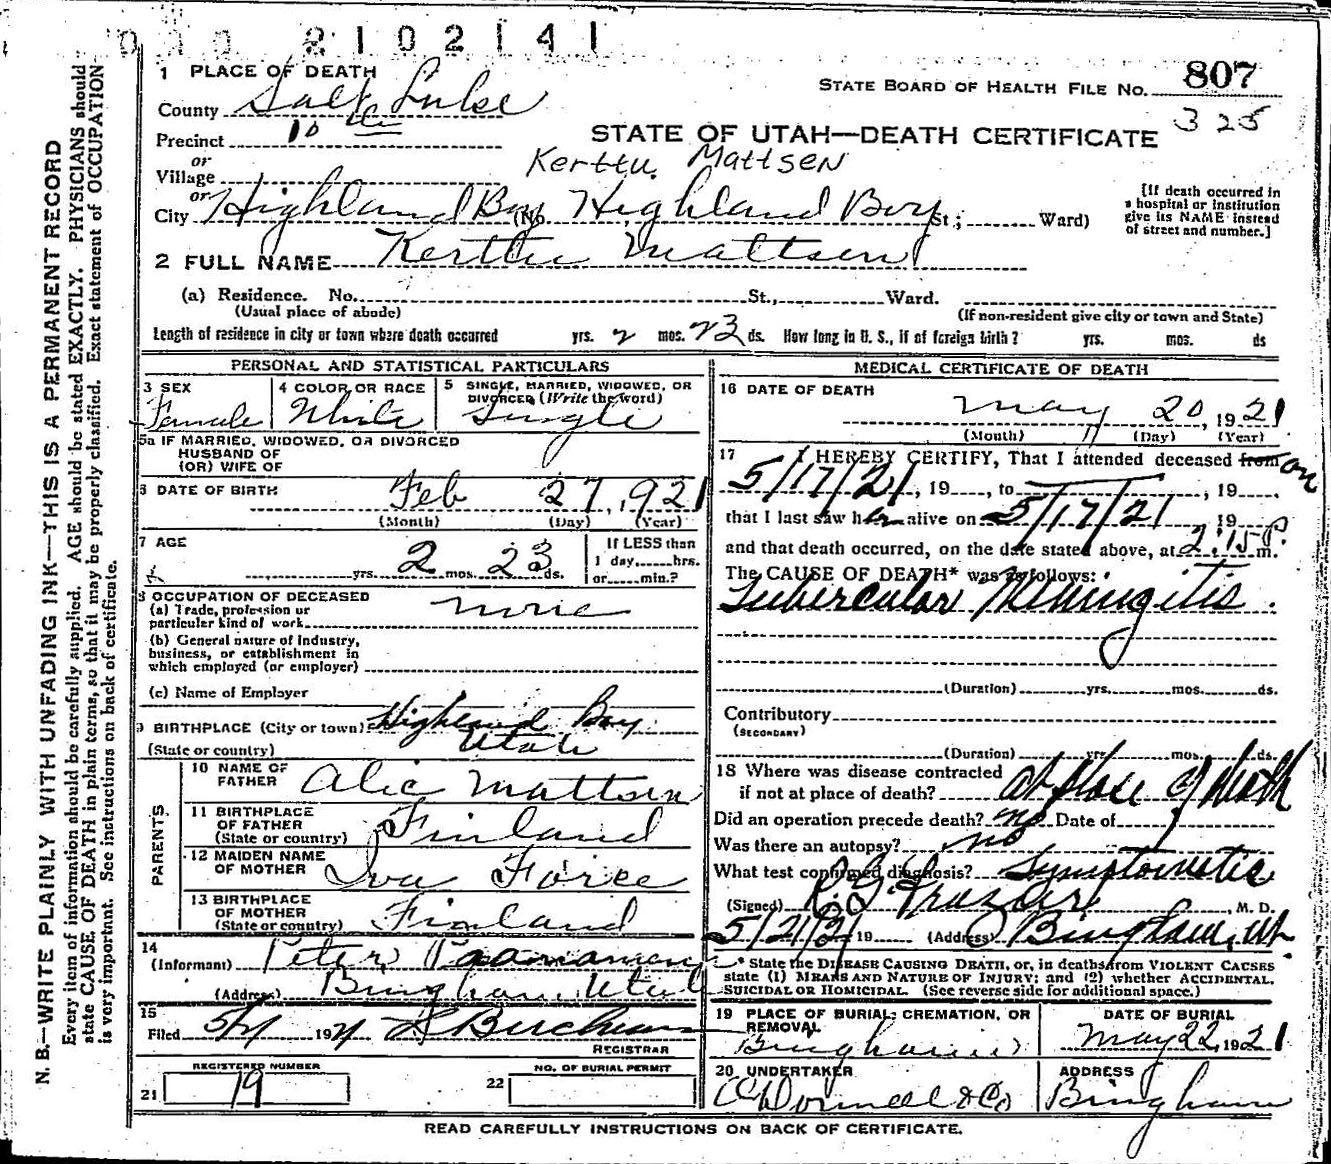 2102141
1 PLACE OF DEATH
STATE BOARD OF HEALTH FILE NO. 807
County Salt Lake
325
Precinct 10 th
STATE OF UTAH—DEATH CERTIFICATE
or
Village
Kerttu Mattsen
or
City Highland Boy (No. Highland Boy St.; Ward)
[If death occurred in a hospital or institution give its NAME instead of street and number.]
2 FULL NAME Kerttu Mattsen
(a) Residence. No. St., Ward.
(Usual place of abode)
(If non-resident give city or town and State)
Length of residence in city or town where death occurred yrs. 2 mos. 23 ds. How long in U. S., if of foreign birth? yrs. mos. ds
PERSONAL AND STATISTICAL PARTICULARS
3 SEX
Female
4 COLOR OR RACE
White
5 SINGLE, MARRIED, WIDOWED, OR DIVORCED (Write the word)
Single
5a IF MARRIED, WIDOWED, OR DIVORCED
HUSBAND OF
(OR) WIFE OF
6 DATE OF BIRTH Feb 27, 1921
(Month) (Day) (Year)
7 AGE
yrs. 2 mos. 23 ds.
If LESS than
1 day, hrs.
or min.?
8 OCCUPATION OF DECEASED
(a) Trade, profession or
particular kind of work none
(b) General nature of industry,
business, or establishment in
which employed (or employer)
(c) Name of Employer
9 BIRTHPLACE (City or town) Highland Boy
(State or country) Utah
PARENTS
10 NAME OF FATHER Alic Mattsen
11 BIRTHPLACE OF FATHER (State or country) Finland
12 MAIDEN NAME OF MOTHER Iva Force
13 BIRTHPLACE OF MOTHER (State or country) Finland
14
(Informant) Peter
(Address) Bingham, Utah
15
Filed
REGISTRAR
REGISTERED NUMBER
21 19
NO. OF BURIAL PERMIT
22
MEDICAL CERTIFICATE OF DEATH
16 DATE OF DEATH
May 20, 1921
(Month) (Day) (Year)
17 I HEREBY CERTIFY, That I attended deceased from on
5/17/21, 19, to , 19
that I last saw her alive on 5/17/21, 19
and that death occurred, on the date stated above, at 2:15 P. m.
The CAUSE OF DEATH* was as follows:
Tubercular Meningitis.
(Duration) yrs. mos. ds.
Contributory
(SECONDARY)
(Duration) yrs. mos. ds.
18 Where was disease contracted
if not at place of death? at place of death
Did an operation precede death? no Date of
Was there an autopsy? no
What test confirmed diagnosis? Symptomatic
(Signed) Frazier, M. D.
5/21/21 19 (Address) Bingham, Ut.
* State the DISEASE CAUSING DEATH, or, in deaths from VIOLENT CAUSES
state (1) MEANS AND NATURE OF INJURY; and (2) whether ACCIDENTAL,
SUICIDAL OR HOMICIDAL. (See reverse side for additional space.)
19 PLACE OF BURIAL, CREMATION, OR REMOVAL
Bingham
DATE OF BURIAL
May 22, 1921
20 UNDERTAKER
O'Donnell & Co
ADDRESS
Bingham
READ CAREFULLY INSTRUCTIONS ON BACK OF CERTIFICATE.
N. B.—WRITE PLAINLY WITH UNFADING INK—THIS IS A PERMANENT RECORD
Every item of information should be carefully supplied. AGE should be stated EXACTLY. PHYSICIANS should
state CAUSE OF DEATH in plain terms, so that it may be properly classified. Exact statement of OCCUPATION
is very important. See instructions on back of certificate.